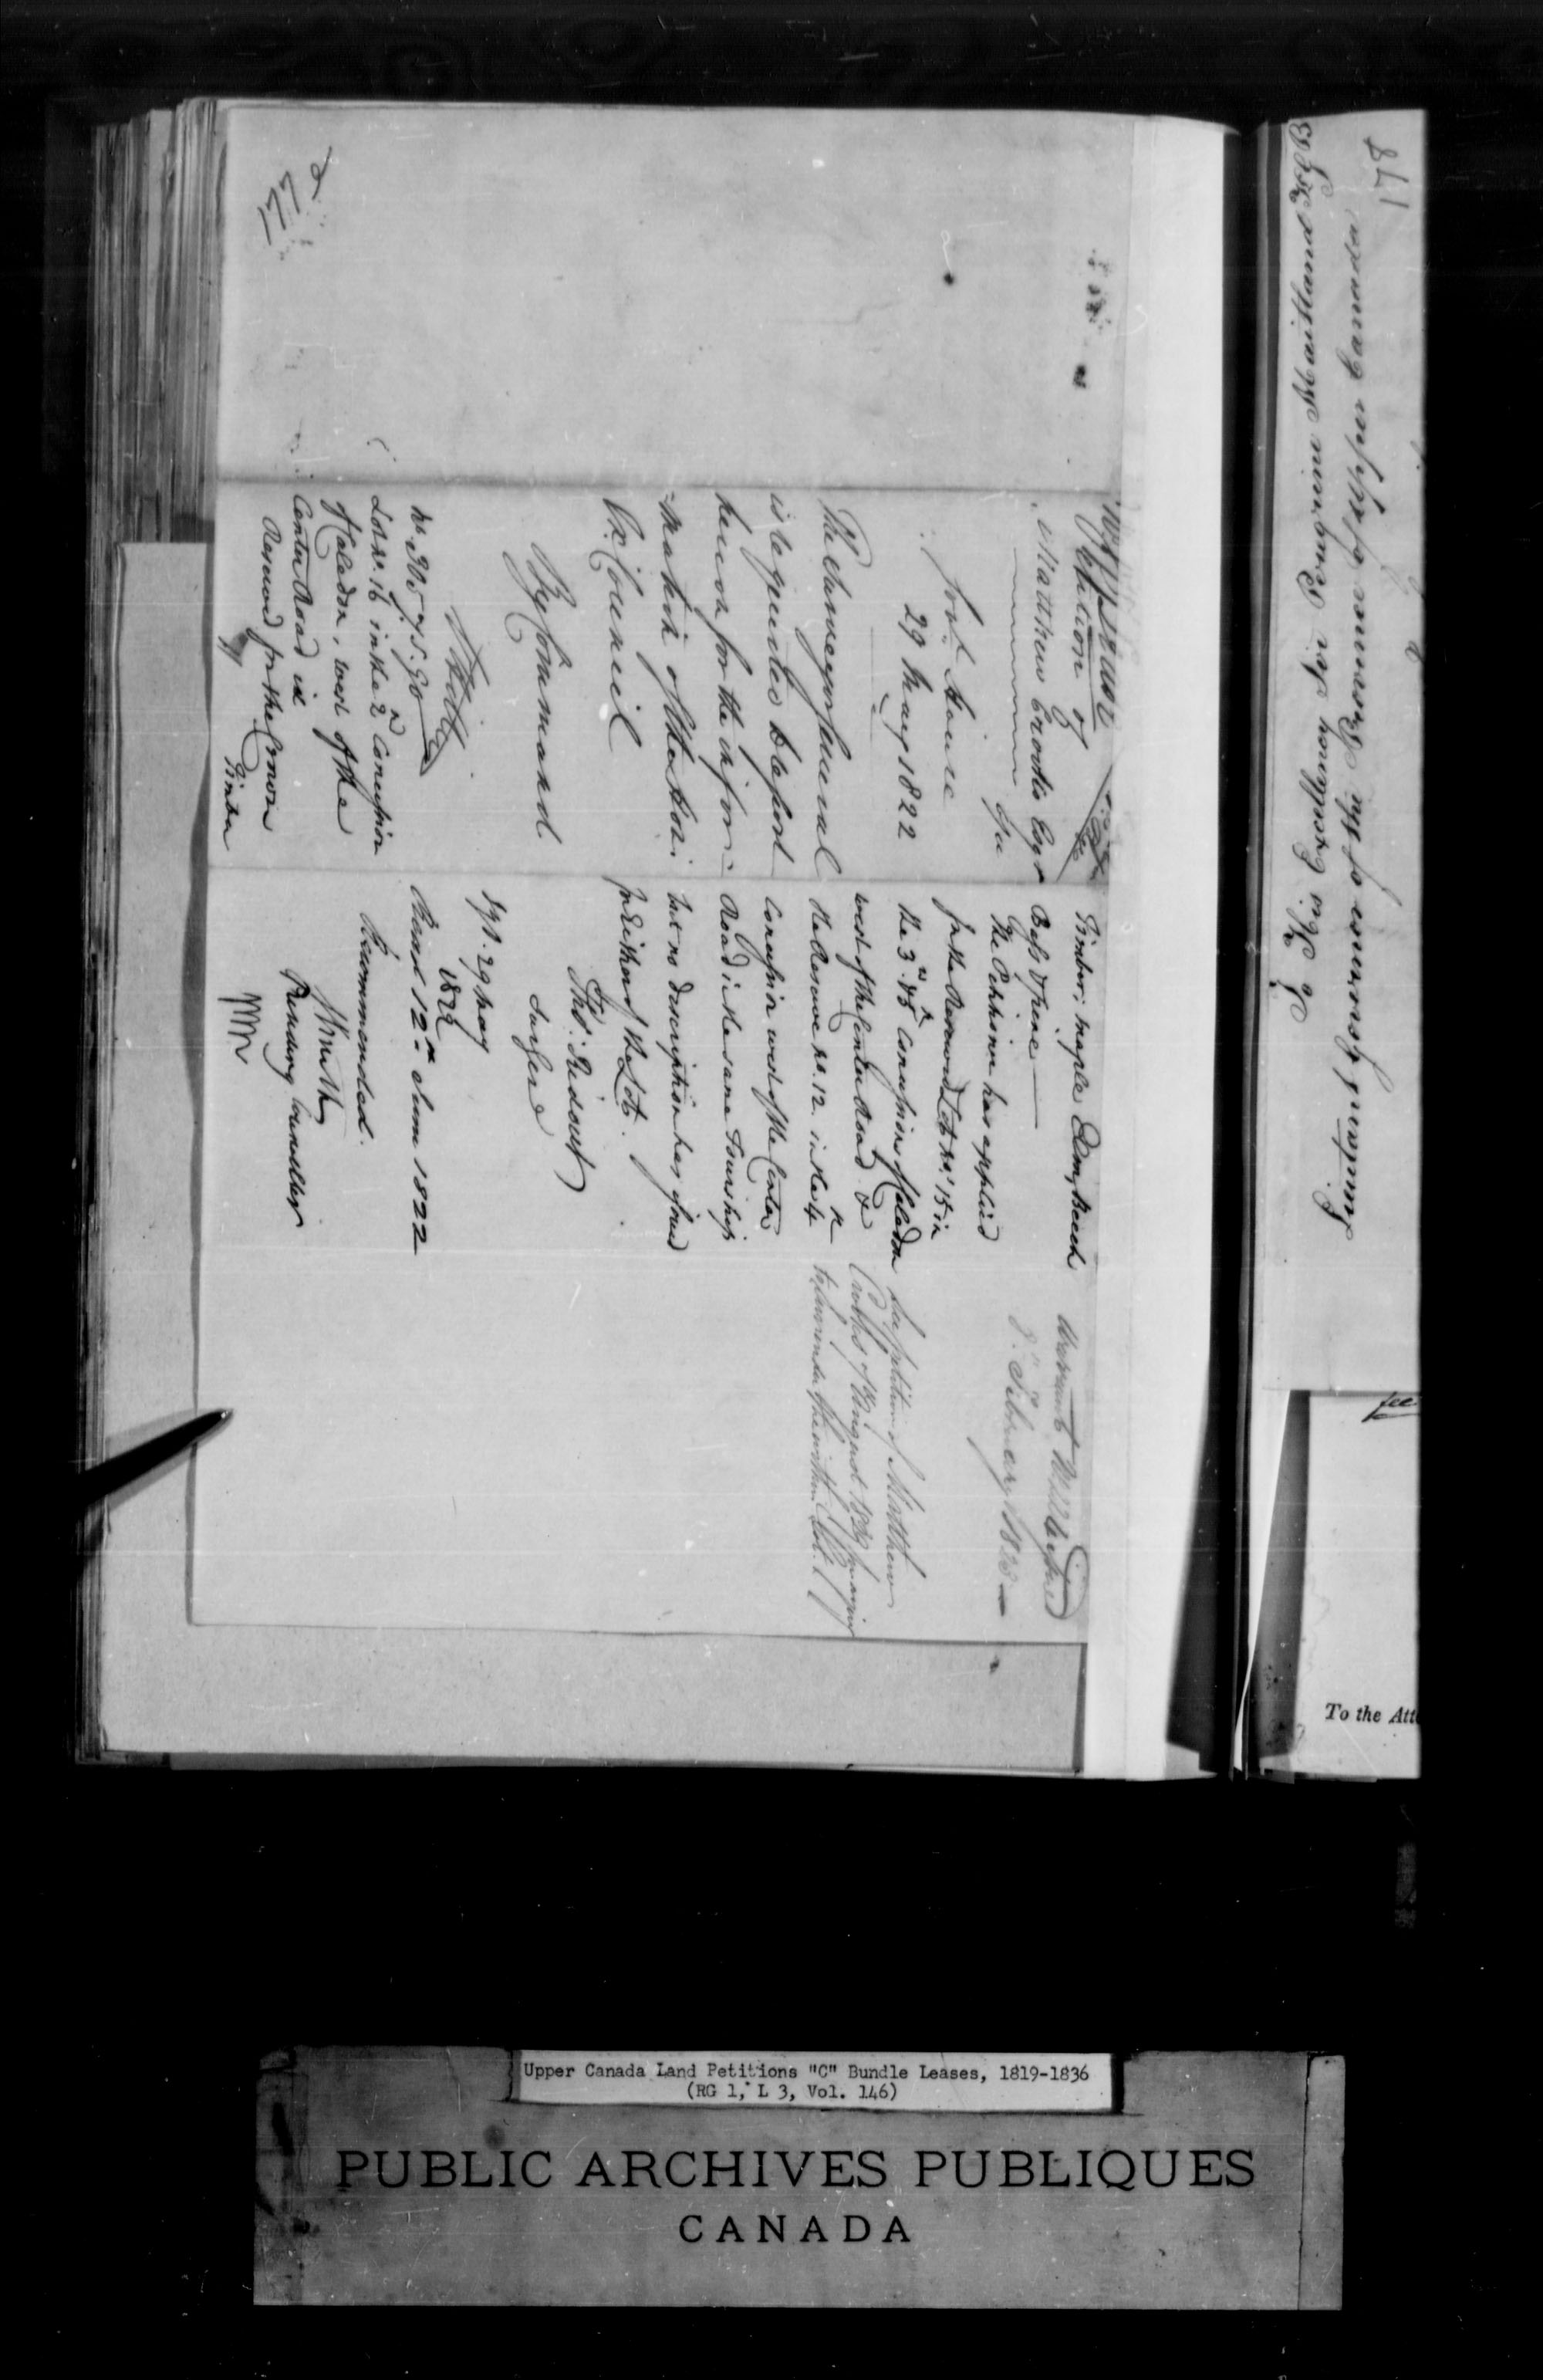 Petition of
Matthew Crooks Esqr
for
Govt. House
29 May 1822
The Surveyor General
is requested to report
hereon for the infor=
=mation of the Hon:
Ex: Council
By Command
No. 305 75.90
Lot No. 16 in the 2d Concession
of Caledon, West of the
Center Road is
Reserved for the Crown
Timber
Timber; maple Elm, Beech
Bass & Pine
The Petitioner has applied
for the Reserved Lot No. 15 in
the 3rd Concession of Caledon
West of the Center Road &
the Reserve No. 12 in the 4th
Concession West of the Center
Road in the same Township
but no description has issued
for Either of the Lots.
Tho: Ridout
Sur Genl
29 May
1822
Read 12th June 1822
Recommended.
Presiding Councillor
8th February 1823
See petition of Matthew
Crooks of August
177
178
To His Excellency Sir Peregrine Maitland KCB
Lieutant Governor of the Province of Upper Canada
fee
To the Att
Upper Canada Land Petitions "C" Bundle Leases, 1819-1836
(RG 1, L 3, Vol. 146)
PUBLIC ARCHIVES PUBLIQUES
CANADA